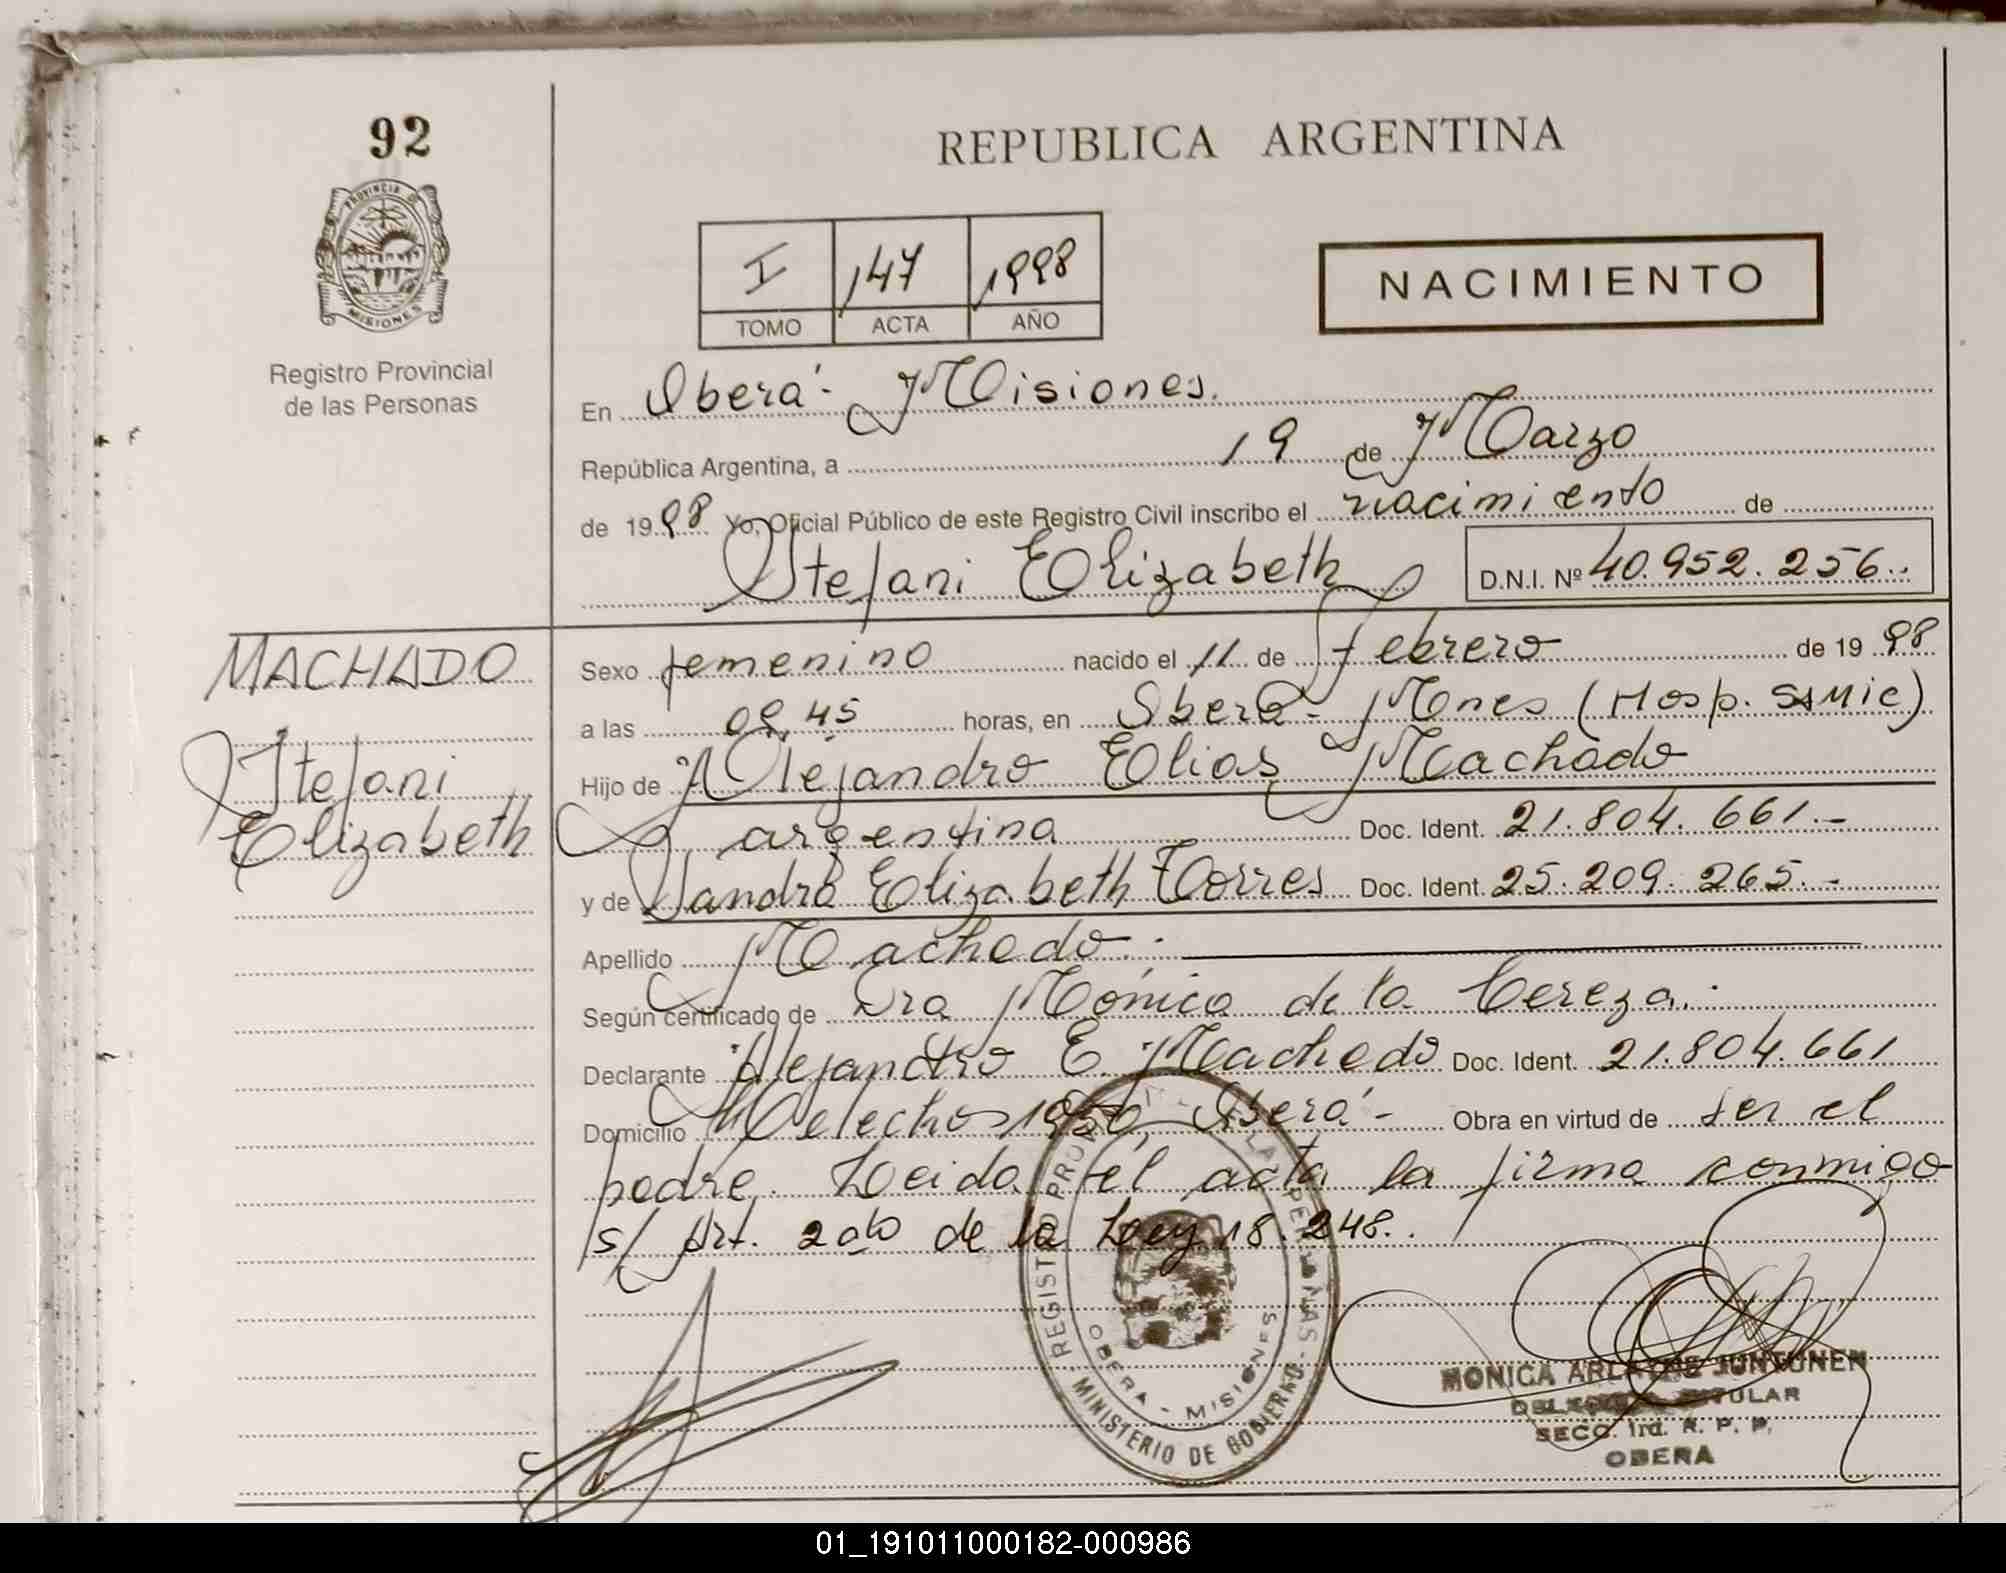 92
REPUBLICA ARGENTINA
PROVINCIA DE
MISIONES
Registro Provincial
de las Personas
I 147 1998
TOMO ACTA AÑO
NACIMIENTO
En Oberá - Misiones.
República Argentina, a 19 de Marzo
de 1998 Yo, Oficial Público de este Registro Civil inscribo el nacimiento de
Stefani Elizabeth D.N.I. Nº 40.952.256.
MACHADO
Stefani
Elizabeth
Sexo femenino nacido el 11 de febrero de 1998
a las 09,45 horas, en Oberá - Mnes (Hosp. SAMIC)
Hijo de Alejandro Elias Machado
argentina Doc. Ident. 21.804.661.-
y de Sandra Elizabeth Torres Doc. Ident. 25.209.265.-
Apellido Machado.
Según certificado de Dra Mónica de la Cereza.
Declarante Alejandro E. Machado Doc. Ident. 21.804.661
Domicilio 1950, Oberá - Obra en virtud de ser el
padre. Leida el acta la firma conmigo
s/ Art. 2do de la Ley 18.248.
REGISTRO PROVINCIAL DE LAS PERSONAS - MINISTERIO DE GOBIERNO
OBERA - MISIONES
MONICA JUNTUNEN
TITULAR
SECC. 1ra. R. P. P.
OBERA
01_191011000182-000986